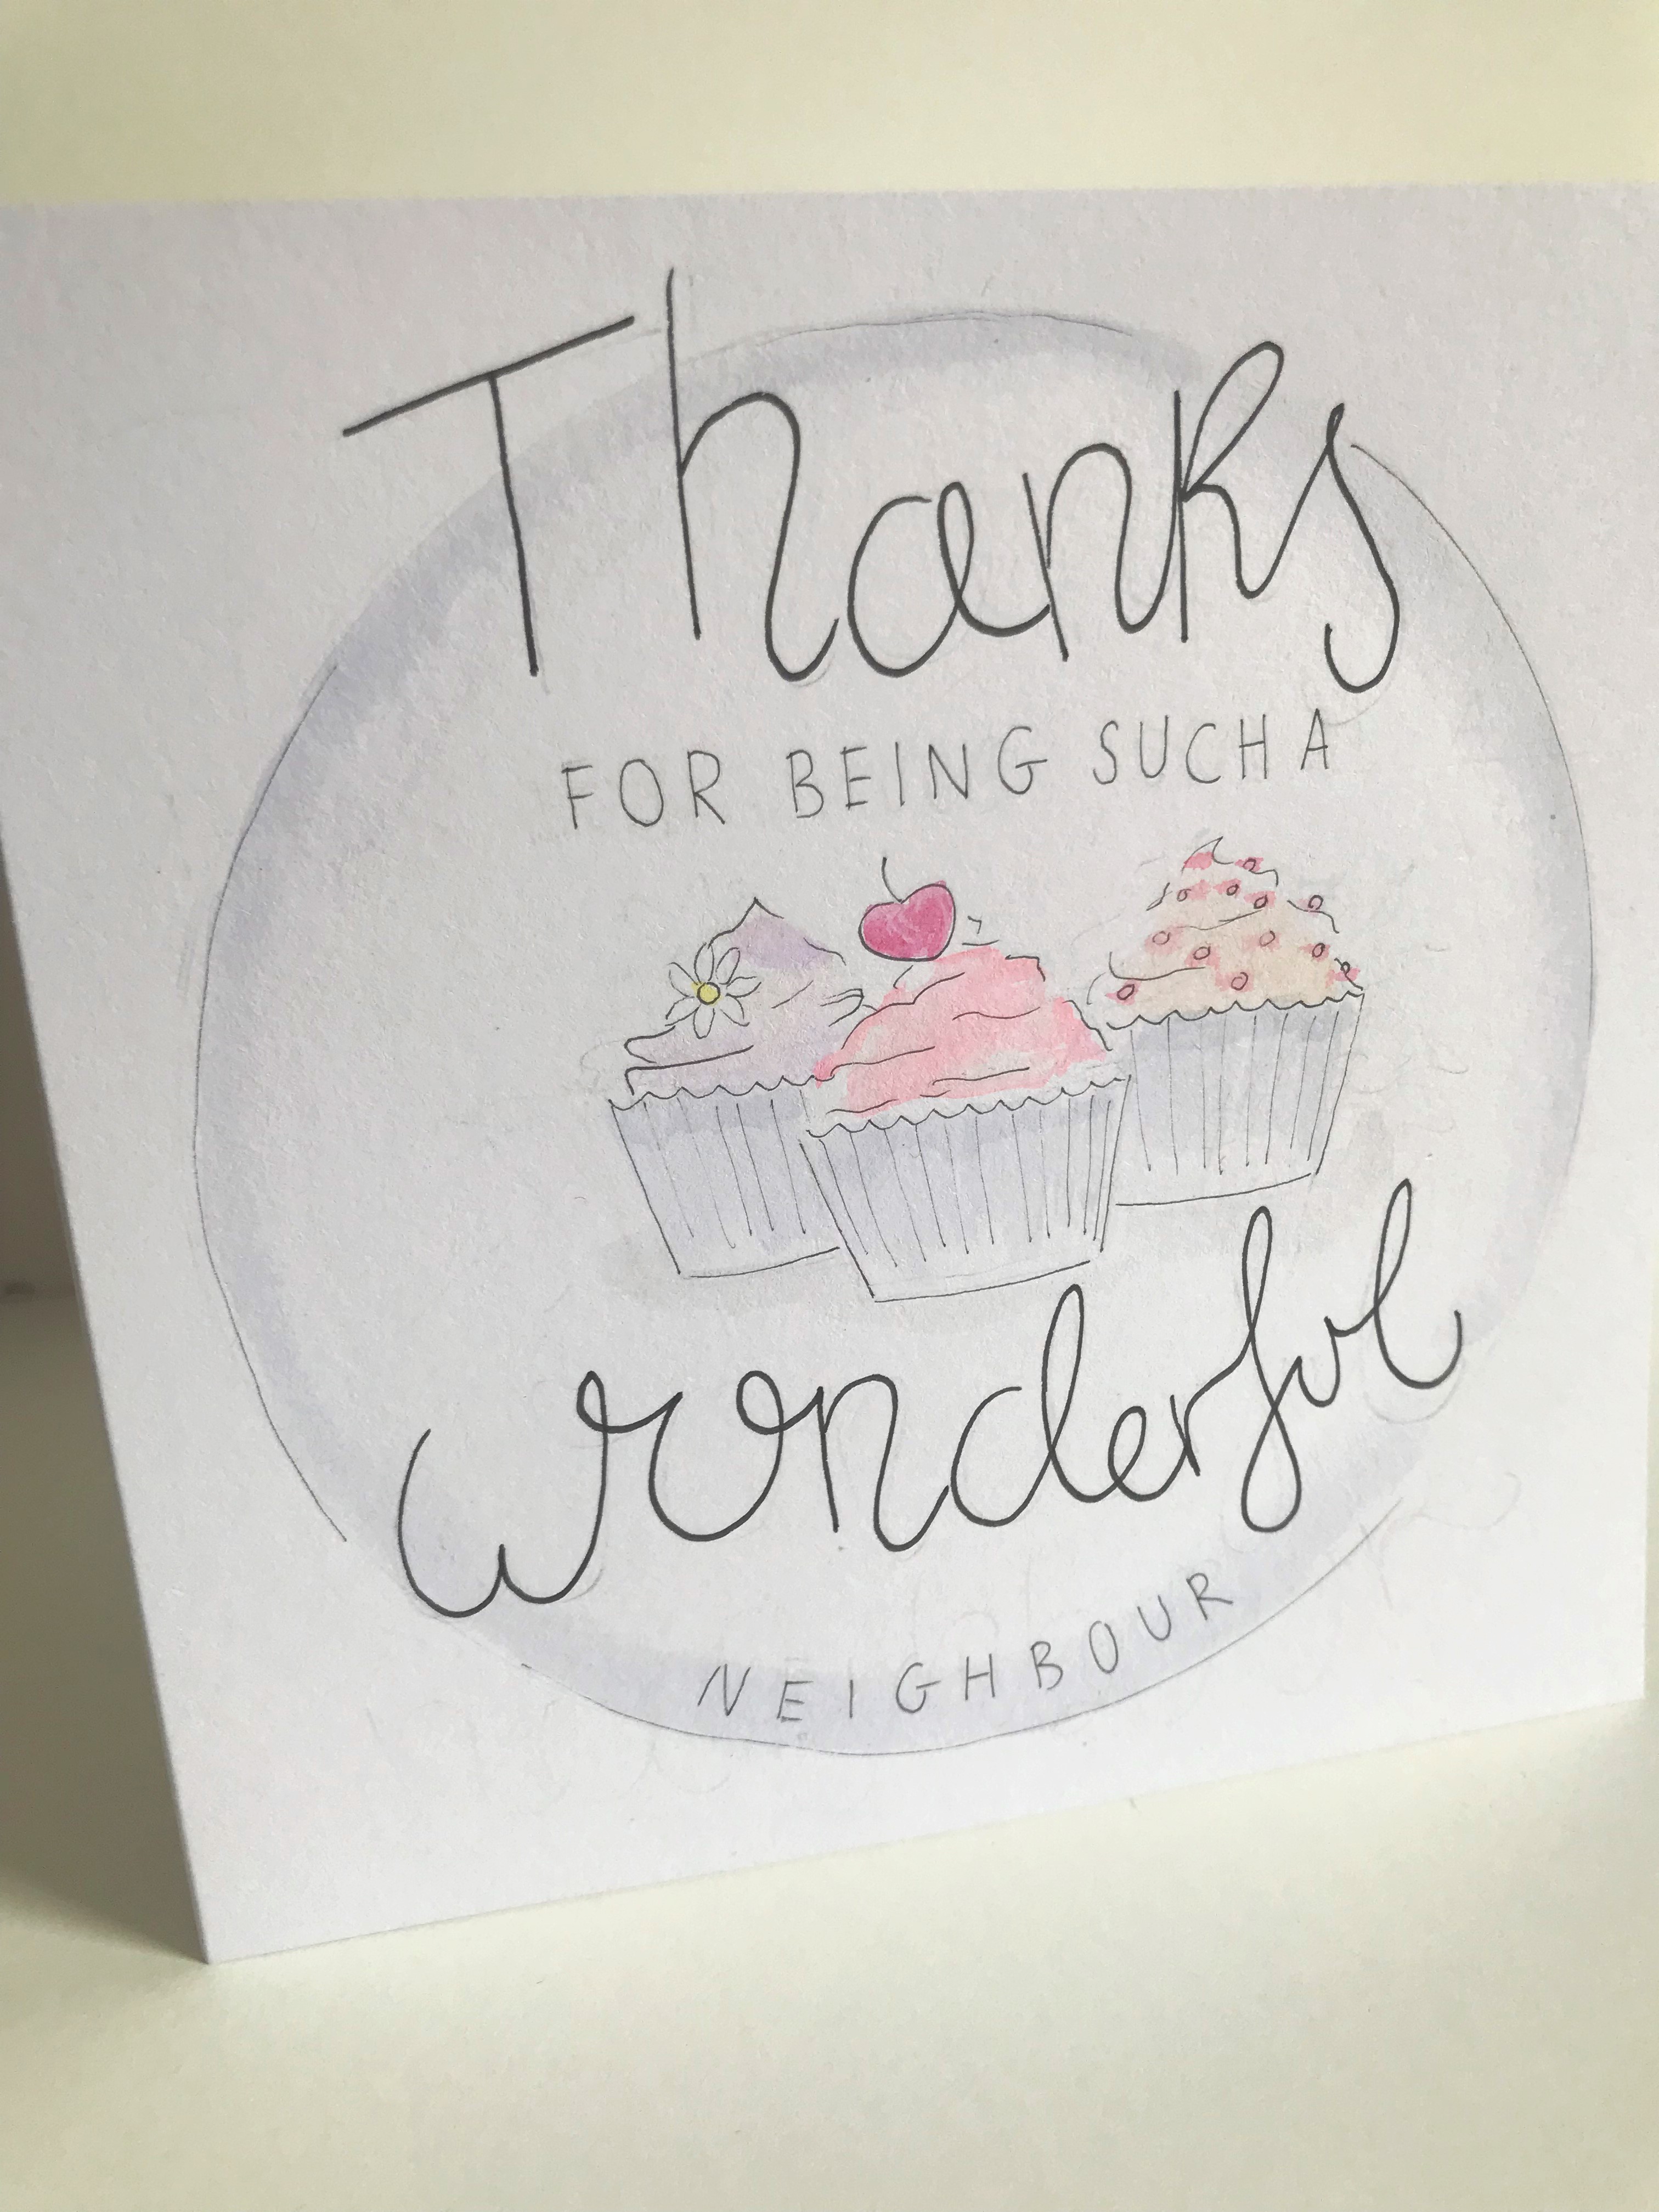 Thanks
FOR BEING SUCH A
wonderful
NEIGHBOUR